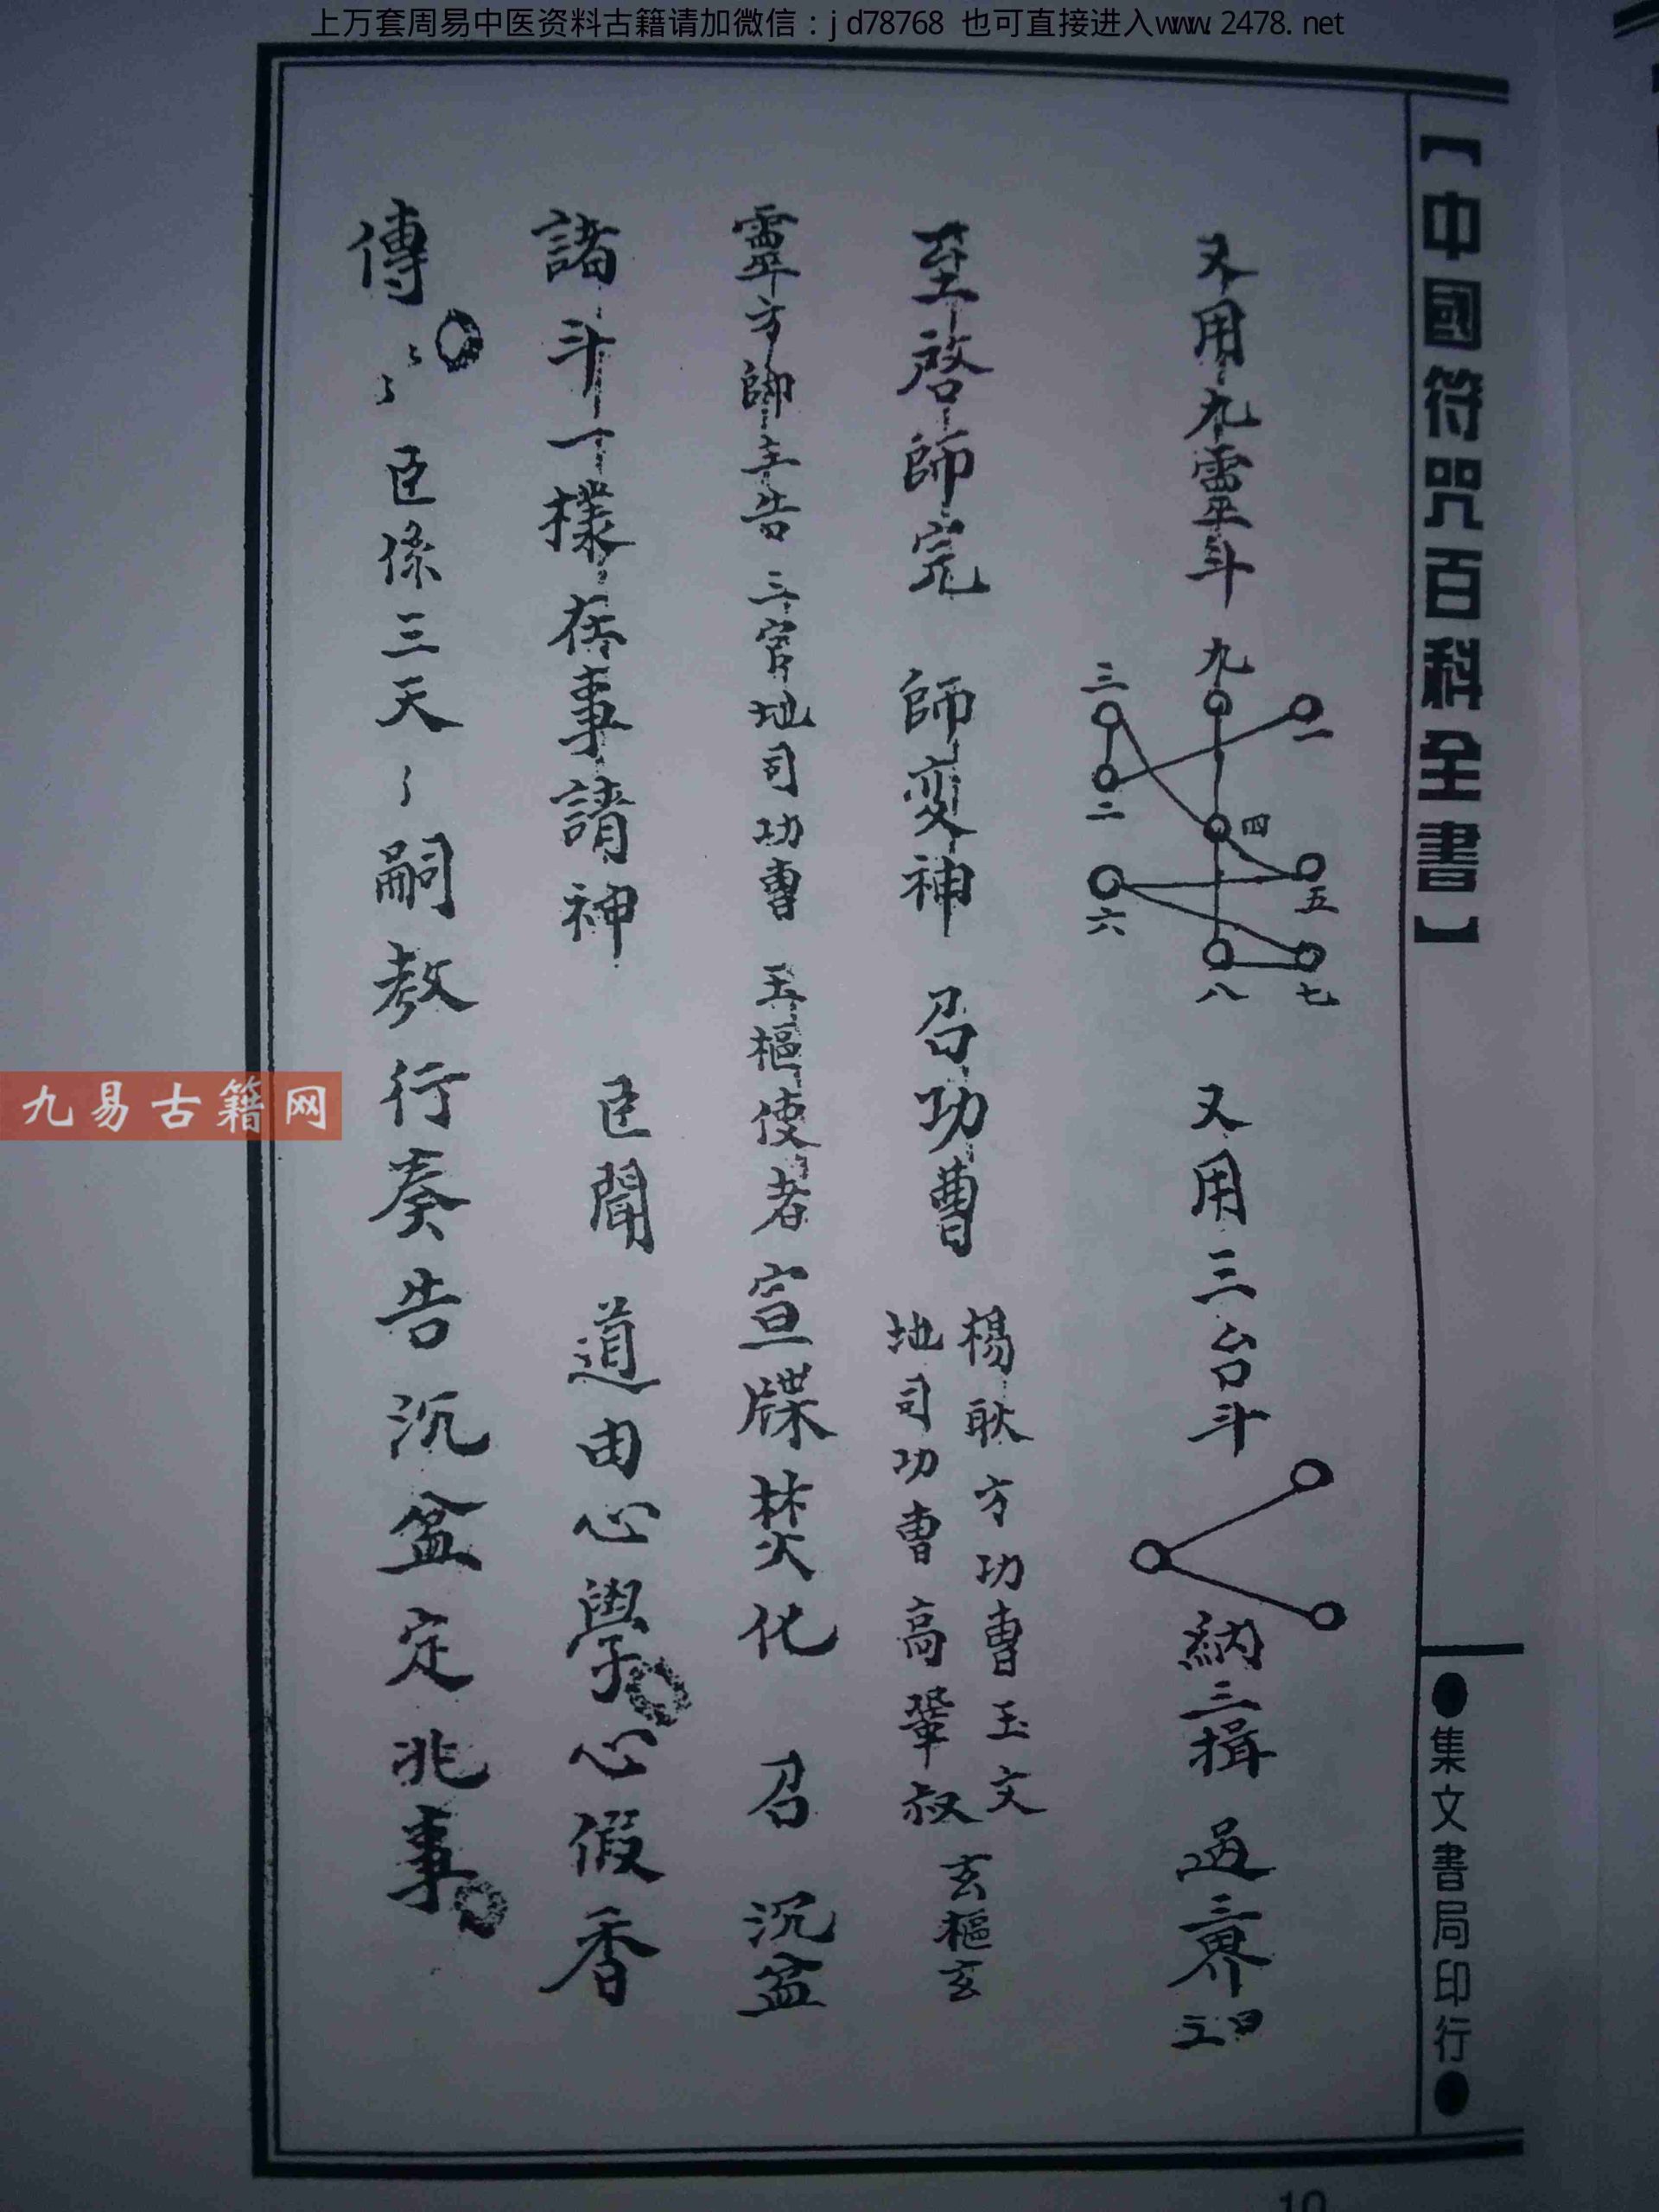 上万套周易中医资料古籍请加微信：jd78768 也可直接进入www.2478.net
【中國符咒百科全書】
●集文書局印行●
又用九靈斗 九 一 三 二 四 五 六 七 八 又用三台斗 納三揖
至啓師完 師変神 召功曹
楊耿方功曹玉文
地司功曹高鞏叔
玄樞玄
靈方師主告 三官地司功曹 玉樞使者宣牒焚化 召 沉盆
諸斗一樣 事請神 臣聞 道由心學 心假香
傳 臣係三天 嗣教行奏告沉盆定兆事
九易古籍网
10